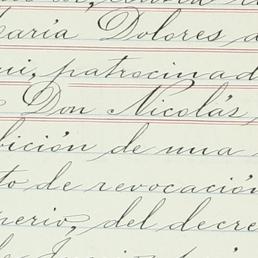 María Dolores
patrocinad
Don Nicolás
bición de una
to de revocación
perio, del decre